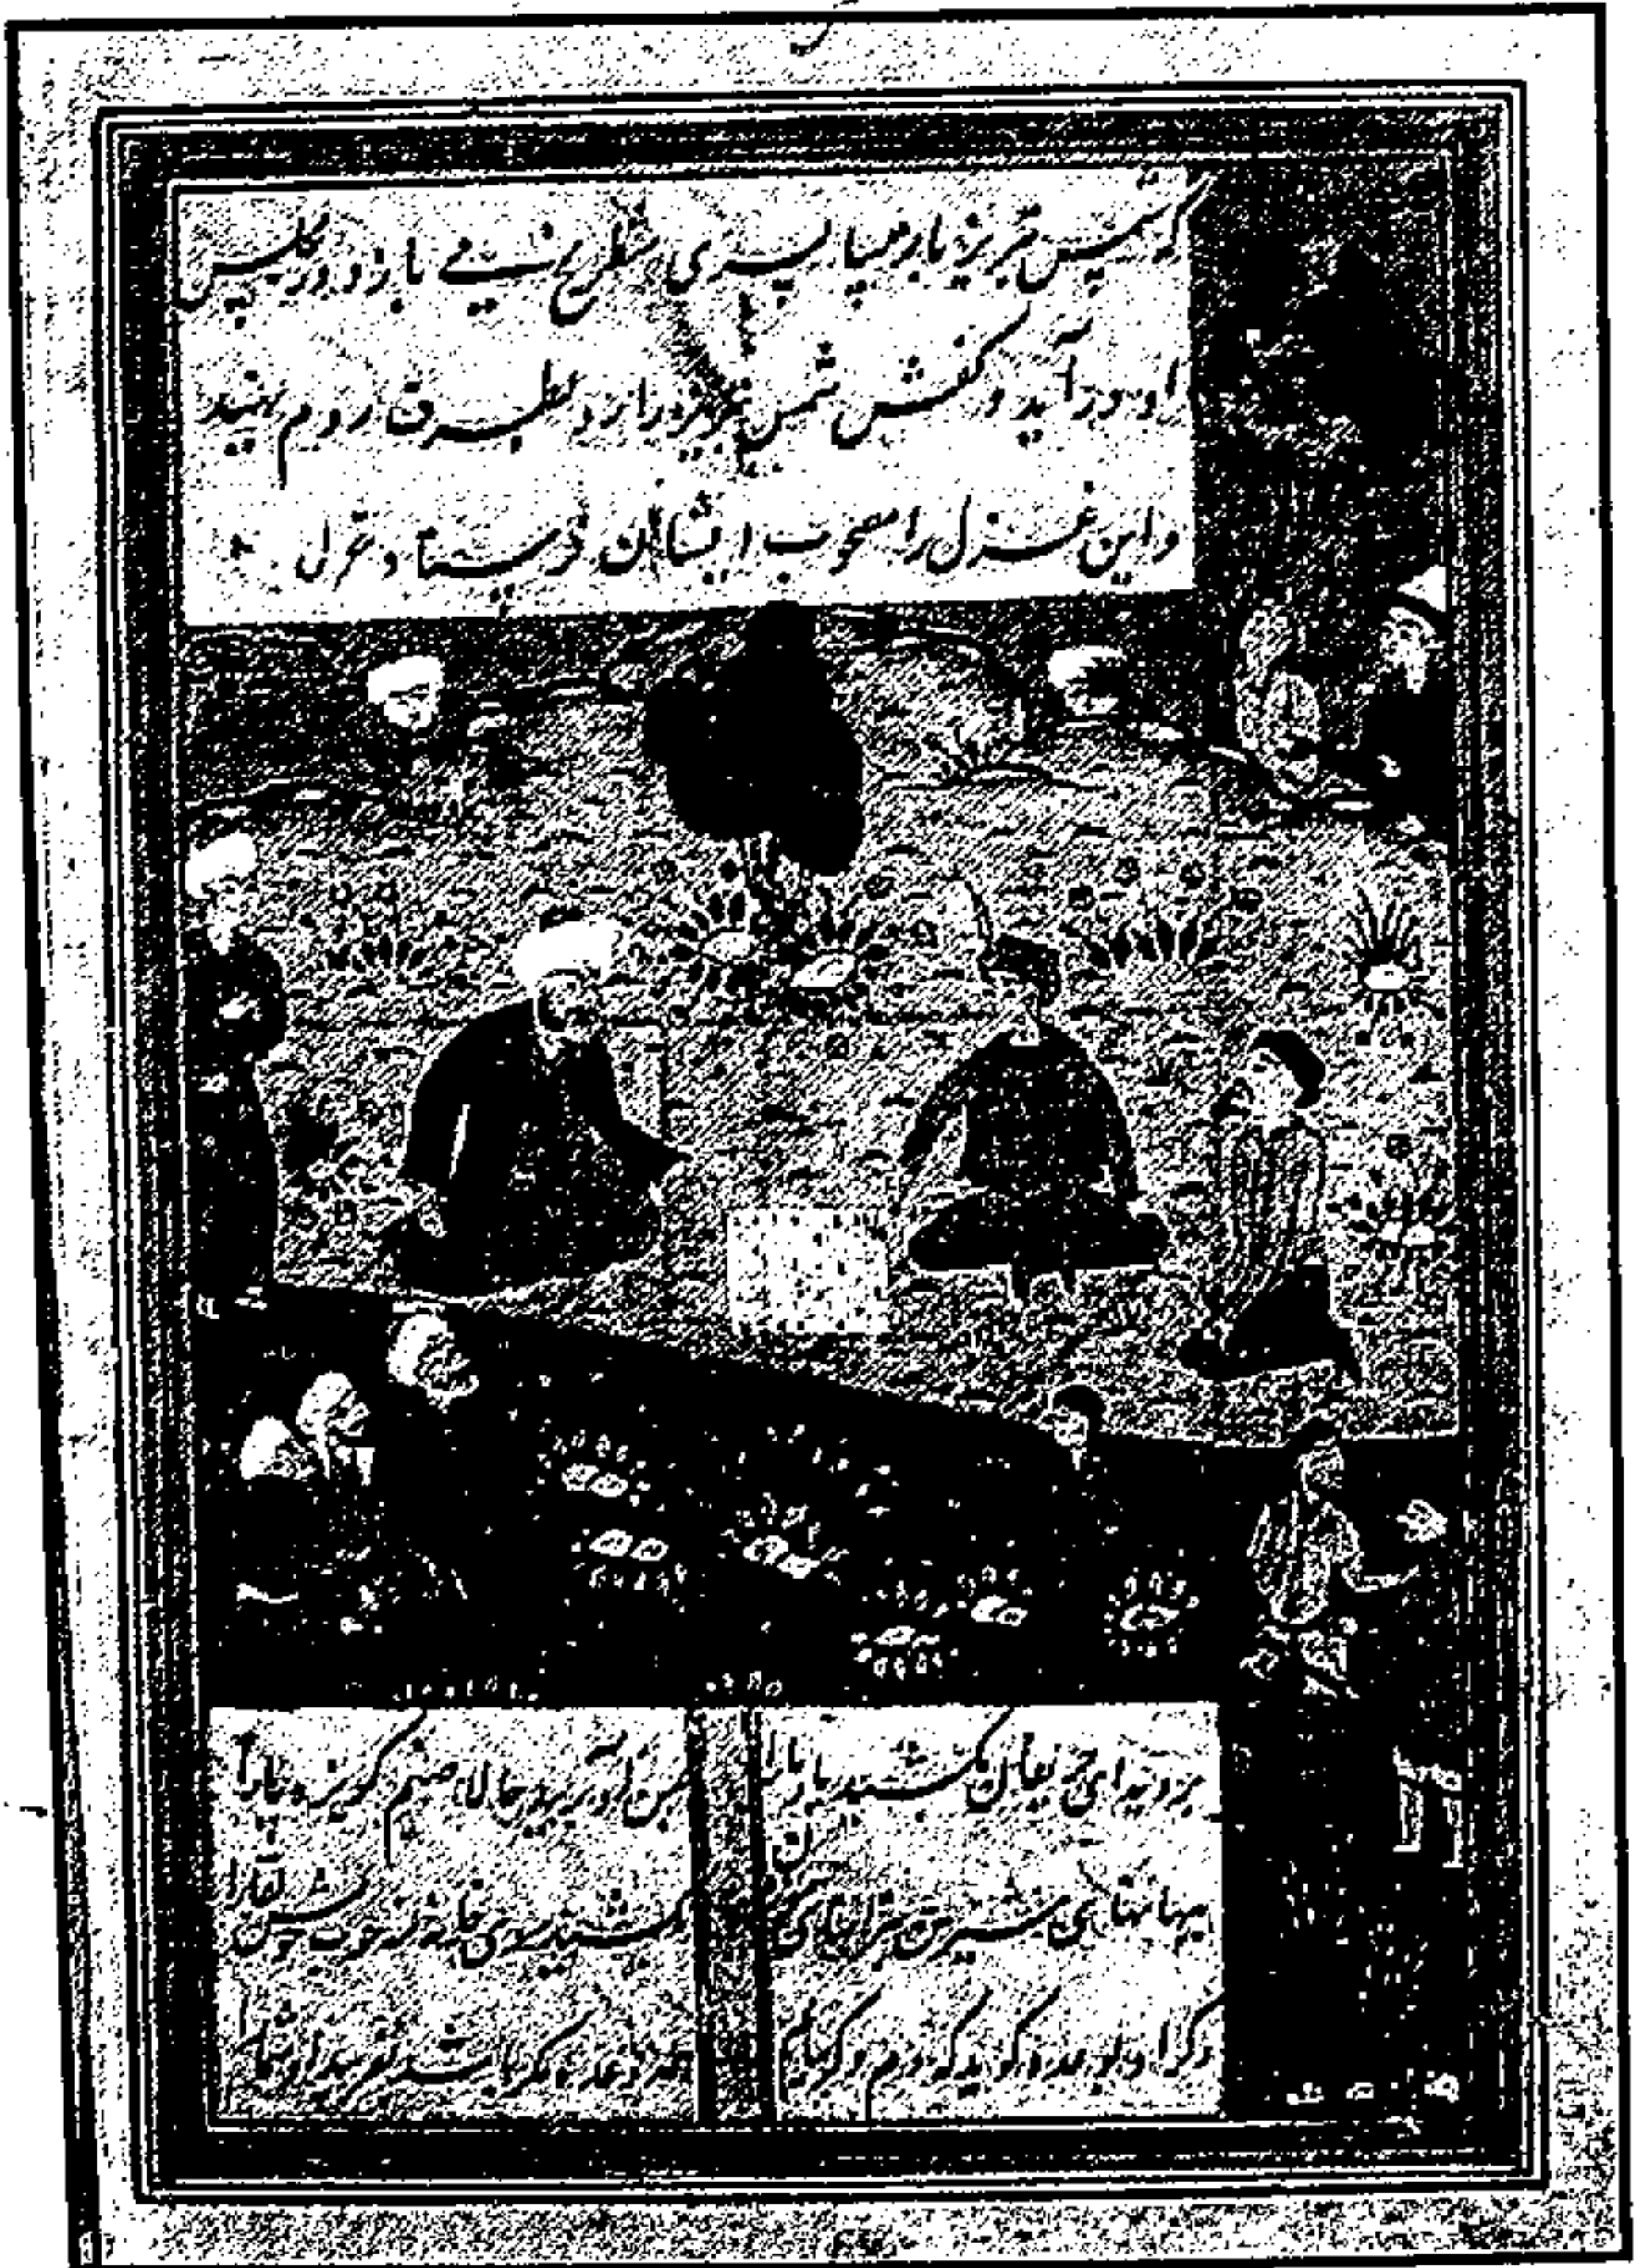 که شمس تبریز با ترسا پسری شطرنج می بازد در مجلس
او در آید و کفش شمس تبریز را رو بطرف روم نهید
و این غزل را مصحوب ایشان فرستاد غزل
بروید ای حریفان بکشید یار ما را
بمن آورید حالا صنم گریزپا را
ببهانهای شیرین بترانهای موزون
بکشید سوی خانه مه خوب خوش لقا را
وگر او بوعده گوید که دم دگر بیایم